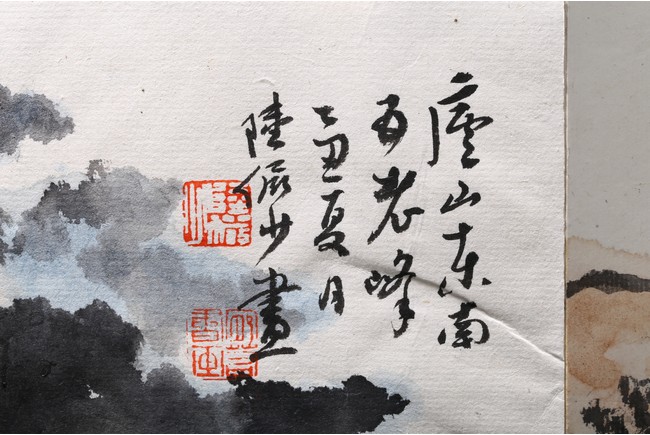 廬山东南
五老峰
乙丑夏月
陸儼少畫